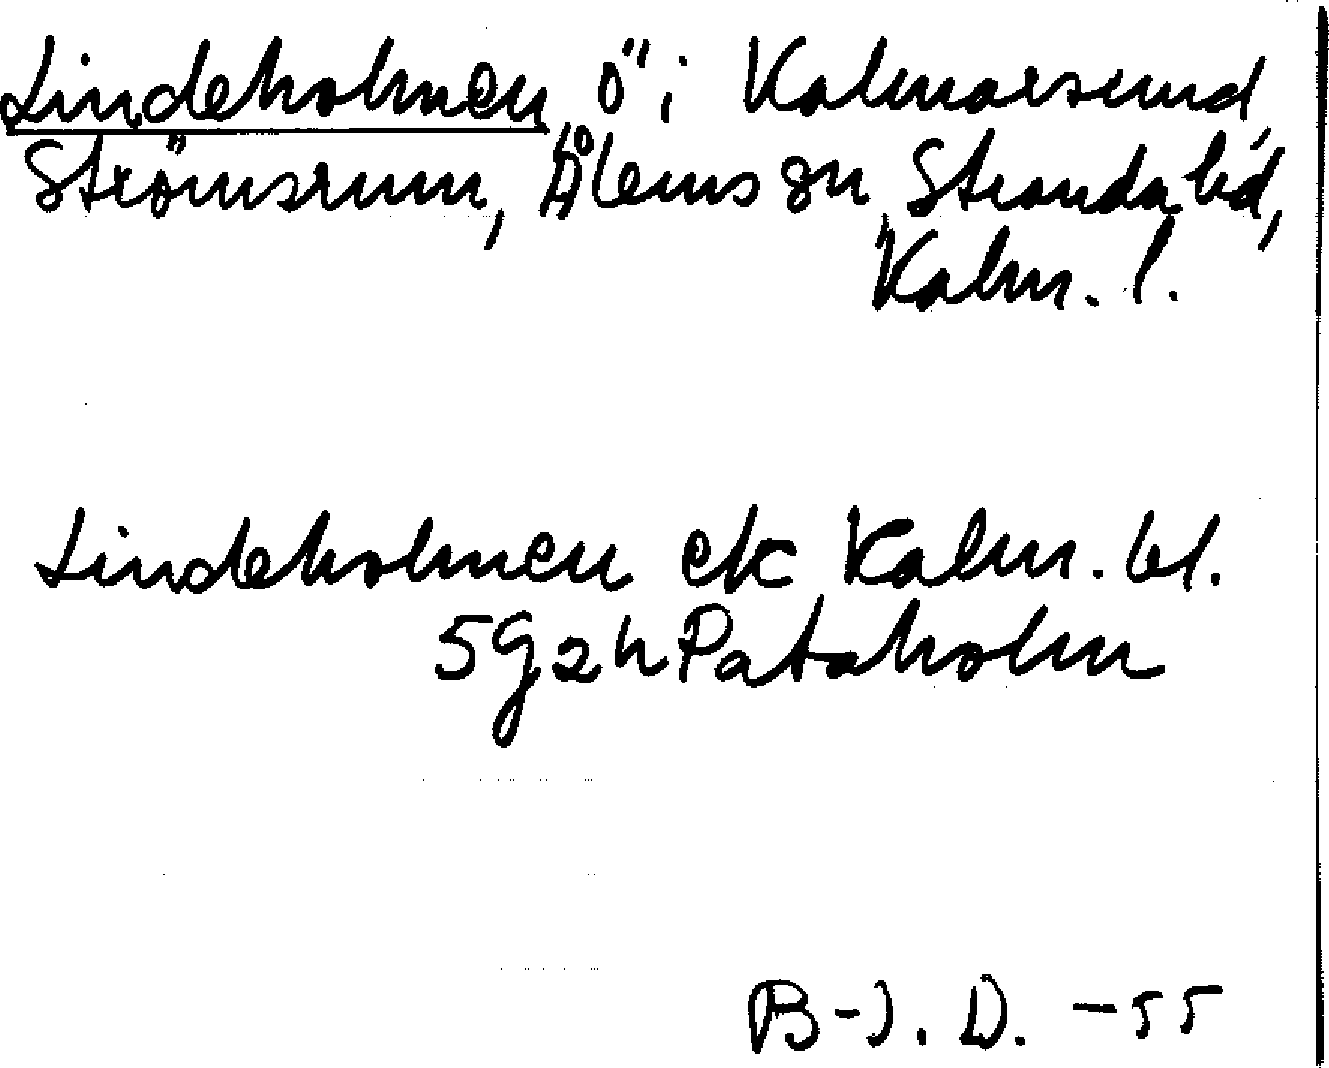 Lindeholmen, ö i Kalmarsund,
Strömsrum, Ålems sn Stranda hd,
Kalm. l.
Lindeholmen ek Kalm. bl.
5G2h Pataholm
B-J. D. -55